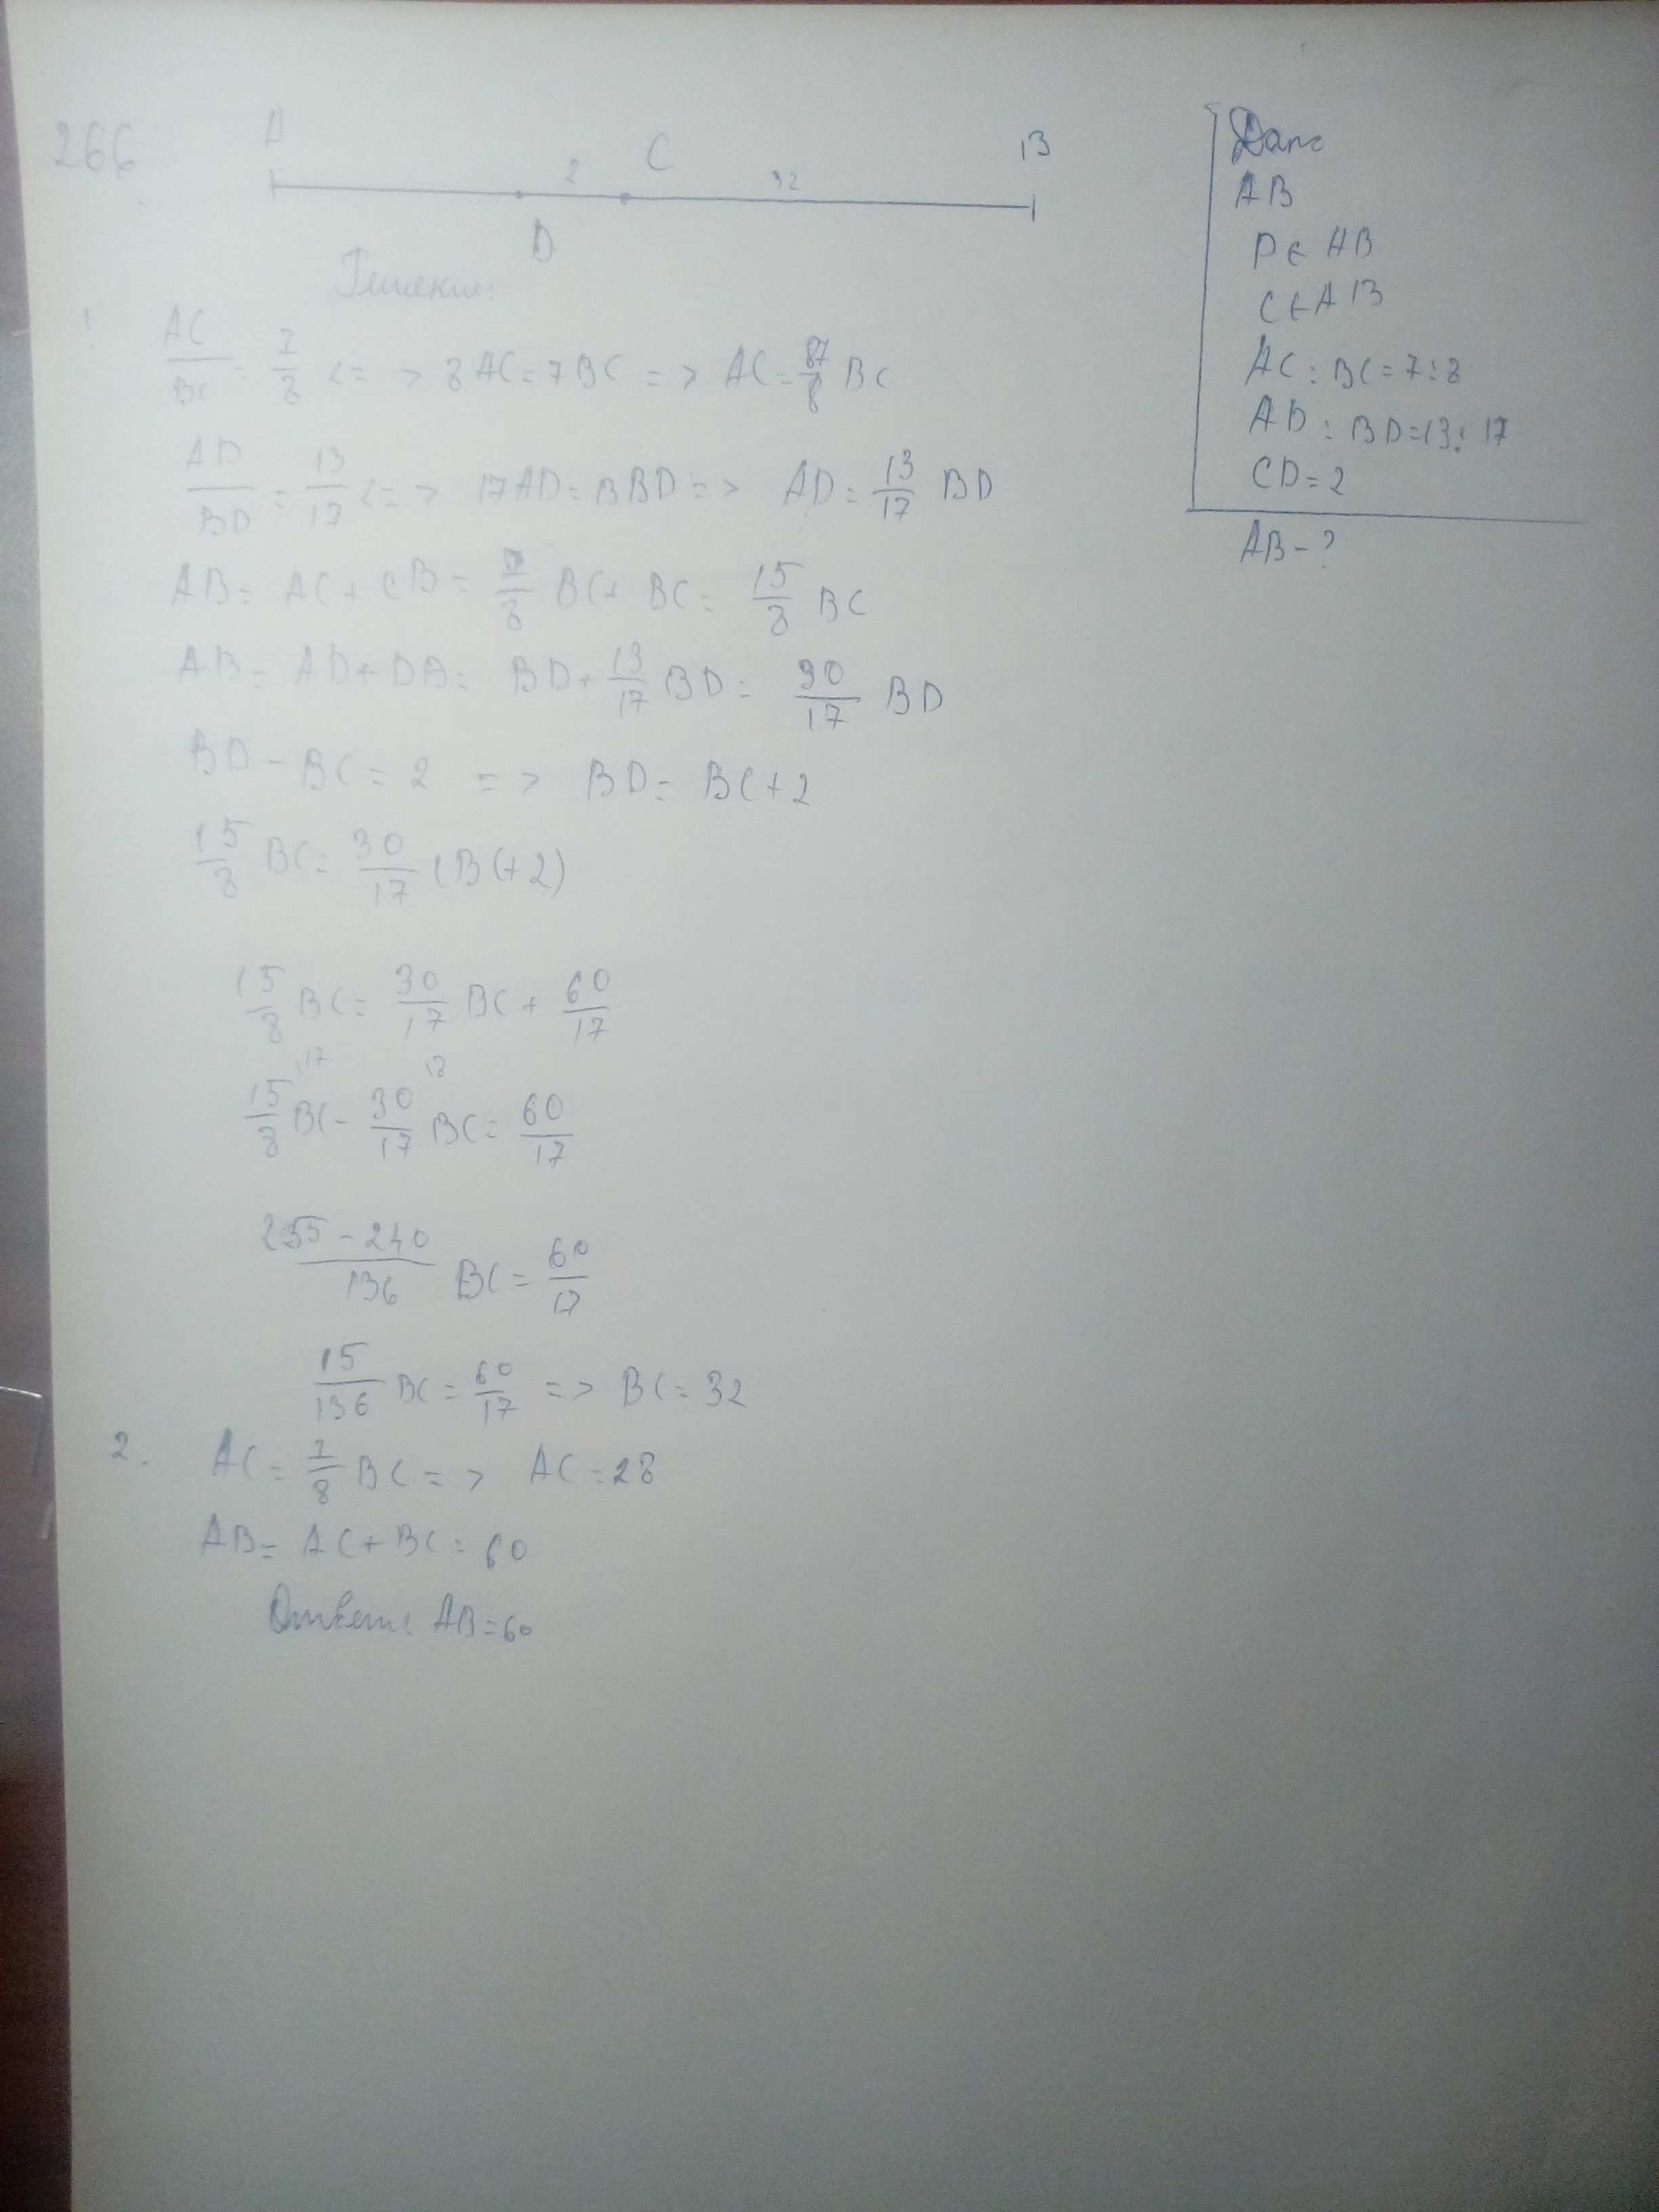 266
A C B
2 32
D
Решение:
1 AC/BC = 7/8 <=> 8AC = 7BC => AC = 7/8 BC
AD/BD = 13/17 <=> 17AD = 13BD => AD = 13/17 BD
AB = AC + CB = 7/8 BC + BC = 15/8 BC
AB = AD + DB = BD + 13/17 BD = 30/17 BD
BD - BC = 2 => BD = BC + 2
15/8 BC = 30/17 (BC + 2)
15/8 BC = 30/17 BC + 60/17
17 8
15/8 BC - 30/17 BC = 60/17
255 - 240/136 BC = 60/17
15/136 BC = 60/17 => BC = 32
2. AC = 7/8 BC => AC = 28
AB = AC + BC = 60
Ответ: AB = 60
Дано
AB
D ∈ AB
C ∈ AB
AC : BC = 7 : 8
AD : BD = 13 : 17
CD = 2
AB - ?